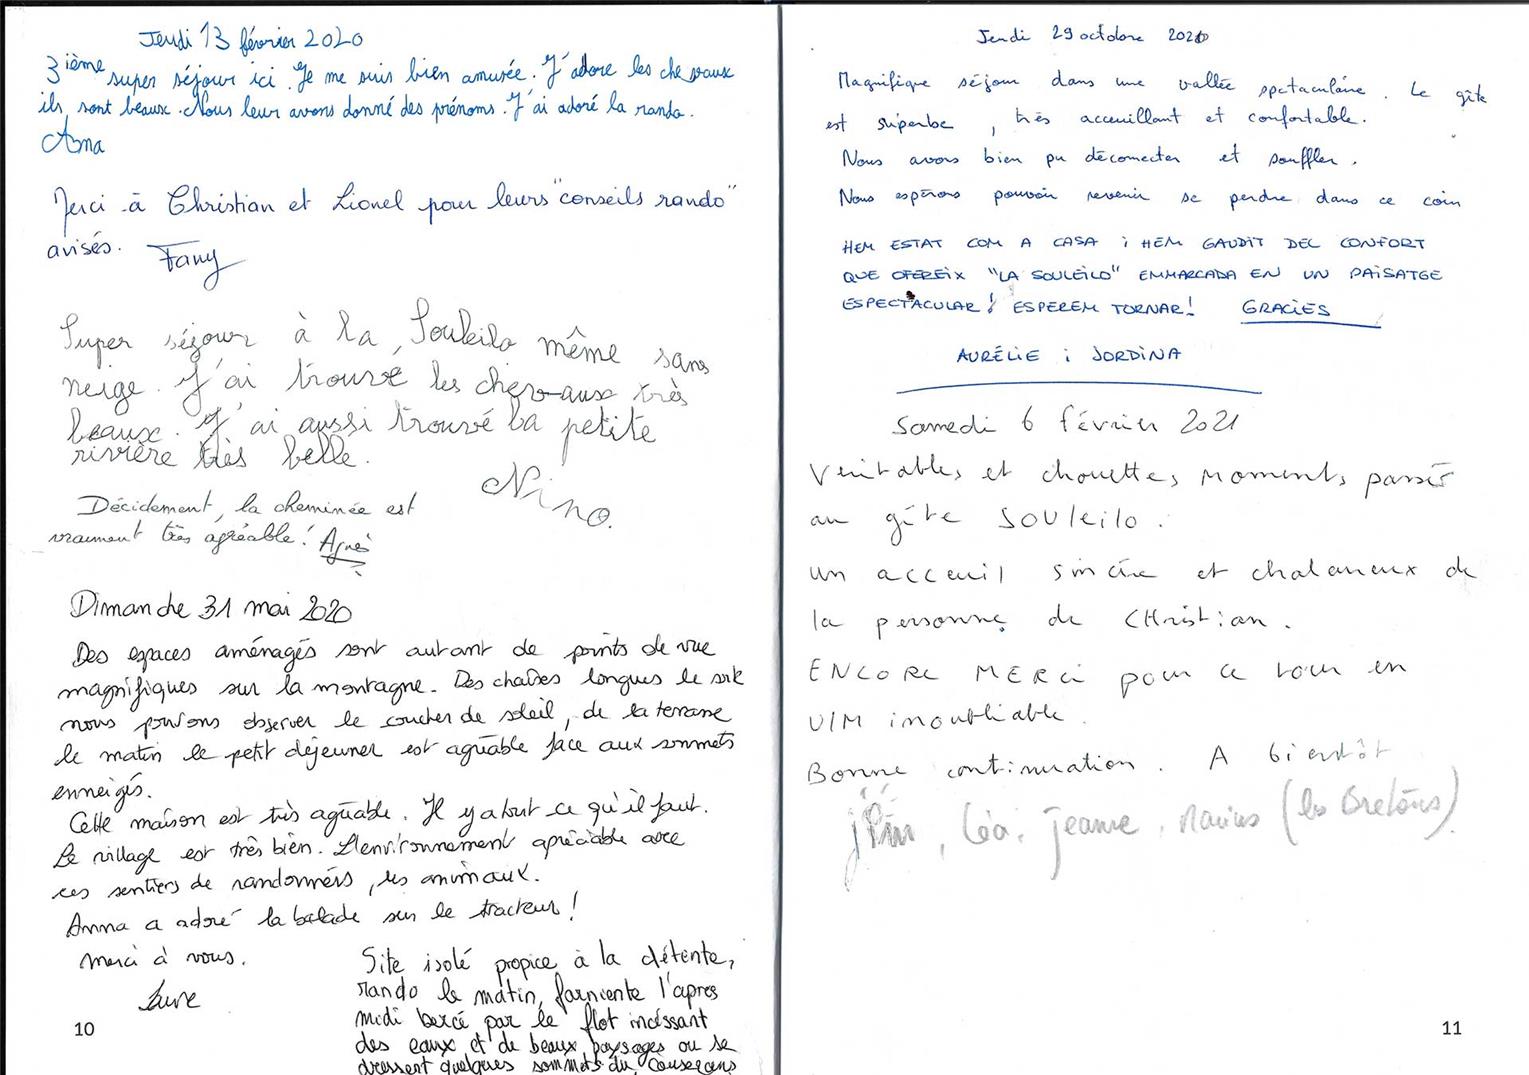 Jeudi 13 février 2020
3ième super séjour ici. Je me suis bien amusée. J'adore les chevaux
ils sont beaux. Nous leur avons donné des prénoms. J'ai adoré la rando.
Merci à Christian et Lionel pour leurs "conseils rando"
avisés. Fany
Super séjour à la Souleilo même sans
neige. J'ai trouvé les chevaux très
beaux. J'ai aussi trouvé la petite
rivière très belle.
Nino.
Décidement, la cheminée est
vraiment très agréable! Agnès
Dimanche 31 mai 2020
Des espaces aménagés sont autant de points de vue
magnifiques sur la montagne. Des chaises longues le soir
nous pouvons observer le coucher de soleil, de la terrasse
le matin le petit déjeuner est agréable face aux sommets
enneigés.
Cette maison est très agréable. Il y a tout ce qu'il faut.
Le village est très bien. L'environnement apréciable avec
ces sentiers de randonnées, les animaux.
Anna a adoré la balade sur le tracteur!
merci à vous.
Laure
Site isolé propice à la détente,
rando le matin, farniente l'apres
midi bercé par le flot incéssant
des eaux et de beaux paysages ou se
dressent quelques sommets du Couserans
10
Jeudi 29 octobre 2020
Magnifique séjour dans une vallée spctaculaire. Le gîte
est superbe, très acceuillant et confortable.
Nous avons bien pu déconnecter et souffler.
Nous espérons pouvoir revenir se perdre dans ce coin
HEM ESTAT COM A CASA i HEM GAUDIT DEL CONFORT
QUE OFEREIX "LA SOULEILO" EMMARCADA EN UN PAISATGE
ESPECTACULAR! ESPEREM TORNAR! GRACIES
AURÉLIE i JORDINA
Samedi 6 février 2021
Veritables et chouettes moments passés
au gîte SOULEILO.
un acceuil sincère et chaleureux de
la personne de CHristian.
ENCORE MERCi pour ce tour en
UIM inoubliable.
Bonne continuation. A bientôt
Léa, Jeanne, Marius (les Bretons).
11